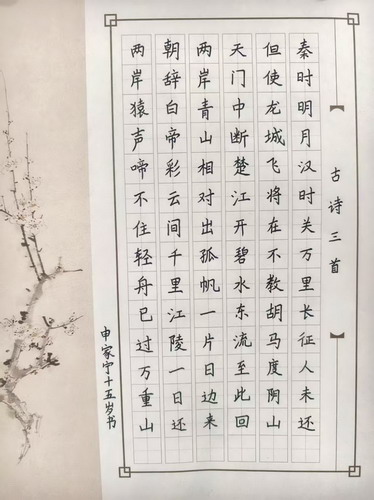 古诗三首
秦时明月汉时关万里长征人未还
但使龙城飞将在不教胡马度阴山
天门中断楚江开碧水东流至此回
两岸青山相对出孤帆一片日边来
朝辞白帝彩云间千里江陵一日还
两岸猿声啼不住轻舟已过万重山
申家宁十五岁书